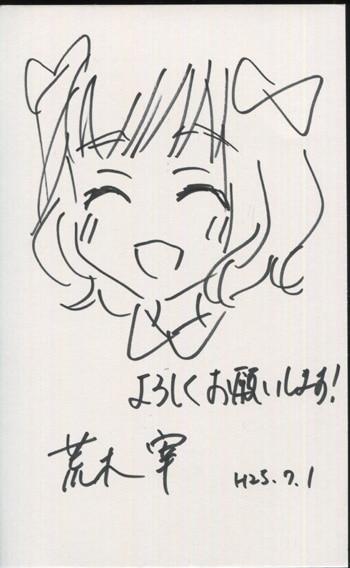 よろしくお願いします!
荒木宰
H25.7.1